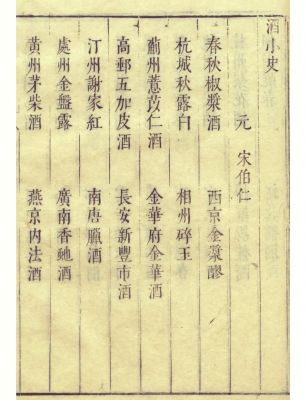 酒小史
元　宋伯仁
春秋椒漿酒　西京金漿醪
杭城秋露白　相州碎玉
薊州薏苡仁酒　金華府金華酒
高郵五加皮酒　長安新豐市酒
汀州謝家紅　南唐臘酒
處州金盤露　廣南香虵酒
黃州茅柴酒　燕京內法酒